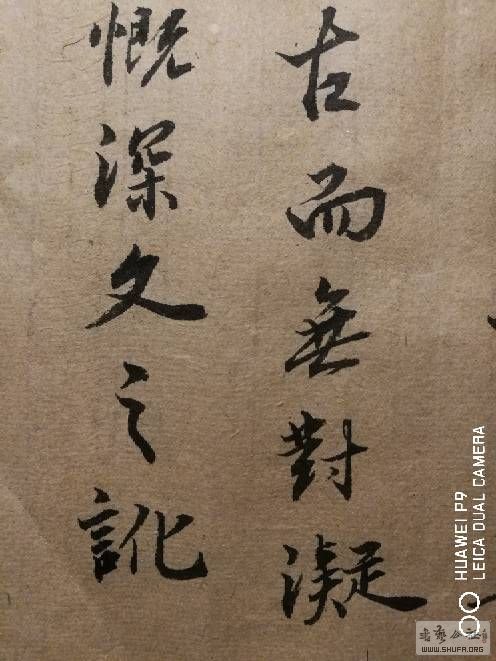 古而無對凝
慨深文之訛
HUAWEI P9
LEICA DUAL CAMERA
WWW.SHUFA.ORG